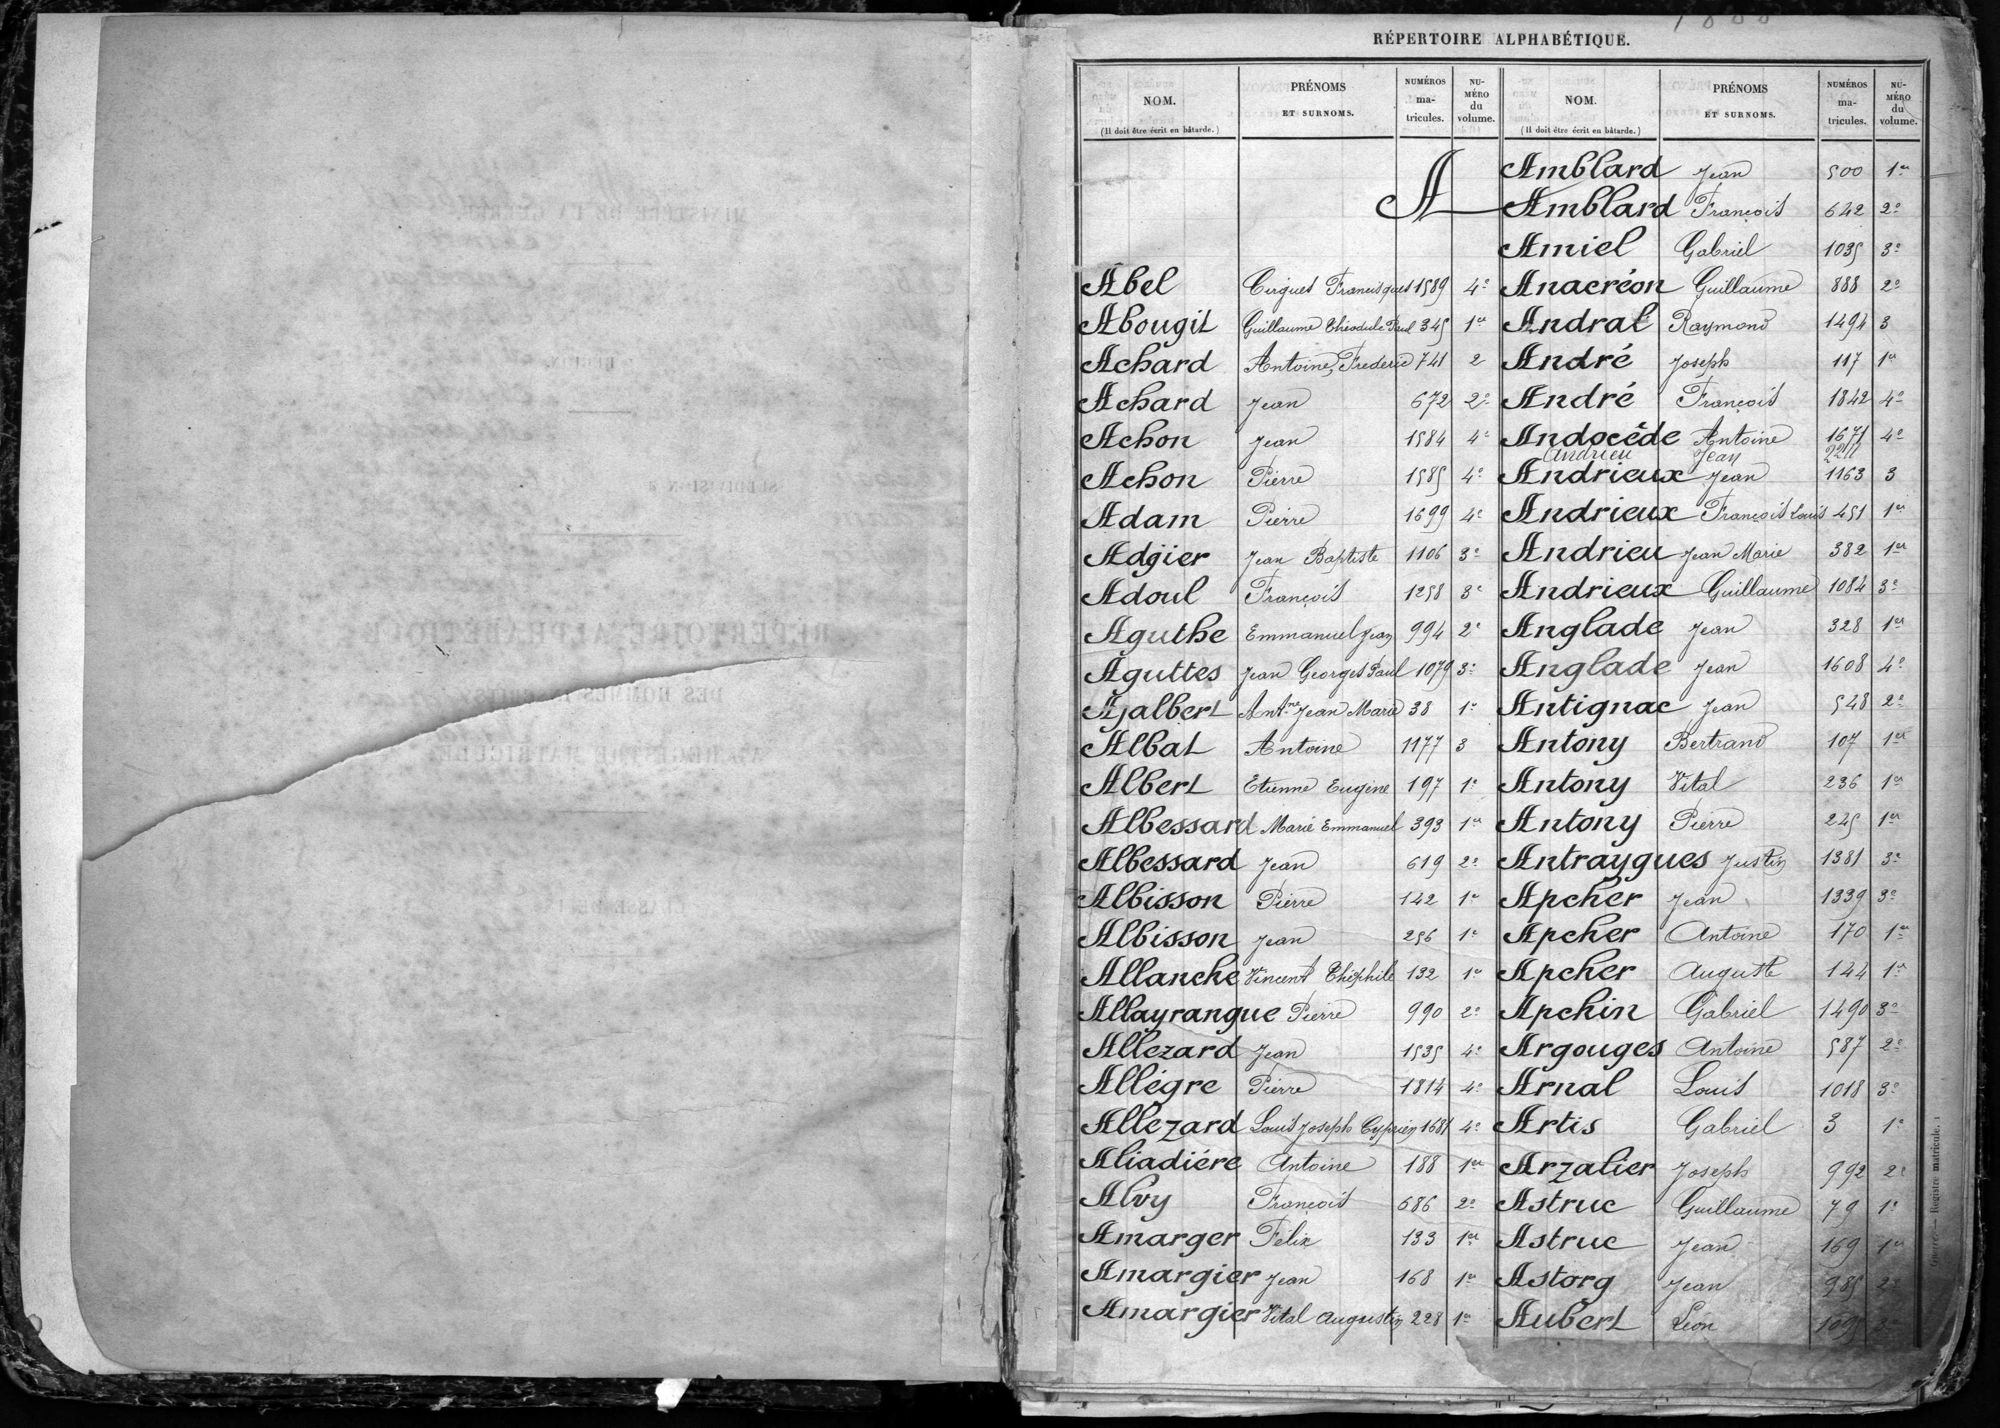 RÉPERTOIRE ALPHABÉTIQUE.
NOM. (Il doit être écrit en bâtarde.) PRÉNOMS ET SURNOMS. NUMÉROS matricules. NUMÉRO du volume.
NOM. (Il doit être écrit en bâtarde.) PRÉNOMS ET SURNOMS. NUMÉROS matricules. NUMÉRO du volume.
A
Abel Cirgues Francisques 1589 4e
Abougit Guillaume Théodule Paul 345 1er
Achard Antoine, Frederic 741 2
Achard Jean 672 2e
Achon Jean 1584 4e
Achon Pierre 1585 4e
Adam Pierre 1699 4e
Adgier Jean Baptiste 1106 3e
Adoul François 1258 3e
Aguthe Emmanuel Jean 994 2e
Aguttes Jean Georges Paul 1079 3e
Ajalbert Antne Jean Marie 38 1er
Albat Antoine 1177 3
Albert Etienne Eugène 197 1e
Albessard Marie Emmanuel 393 1er
Albessard Jean 619 2e
Albisson Pierre 142 1er
Albisson Jean 256 1e
Allanche Vincent Théophile 132 1er
Allayrangue Pierre 990 2e
Allezard Jean 1535 4e
Allègre Pierre 1814 4e
Allezard Louis Joseph Cyprien 1681 4e
Aliadière Antoine 188 1er
Alvy François 686 2e
Amarger Félix 133 1er
Amargier Jean 168 1er
Amargier Vital Augustin 228 1er
Amblard Jean 500 1er
Amblard François 642 2e
Amiel Gabriel 1035 3e
Anacréon Guillaume 888 2e
Andral Raymond 1494 3
André Joseph 117 1er
André François 1842 4e
Andocède Antoine 1671 4e
Andrieu Jean 2211
Andrieux Jean 1163 3
Andrieux François Louis 451 1er
Andrieu Jean Marie 382 1er
Andrieux Guillaume 1084 3e
Anglade Jean 328 1er
Anglade Jean 1608 4e
Antignac Jean 548 2e
Antony Bertrand 107 1er
Antony Vital 236 1er
Antony Pierre 245 1er
Antraygues Justin 1381 3e
Apcher Jean 1339 3e
Apcher Antoine 170 1er
Apcher Auguste 144 1er
Apchin Gabriel 1490 3e
Argouges Antoine 587 2e
Arnal Louis 1018 3e
Artis Gabriel 3 1e
Arzalier Joseph 992 2e
Astruc Guillaume 79 1e
Astruc Jean 169 1er
Astorg Jean 985 2e
Aubert Léon
Registre matricule. 1